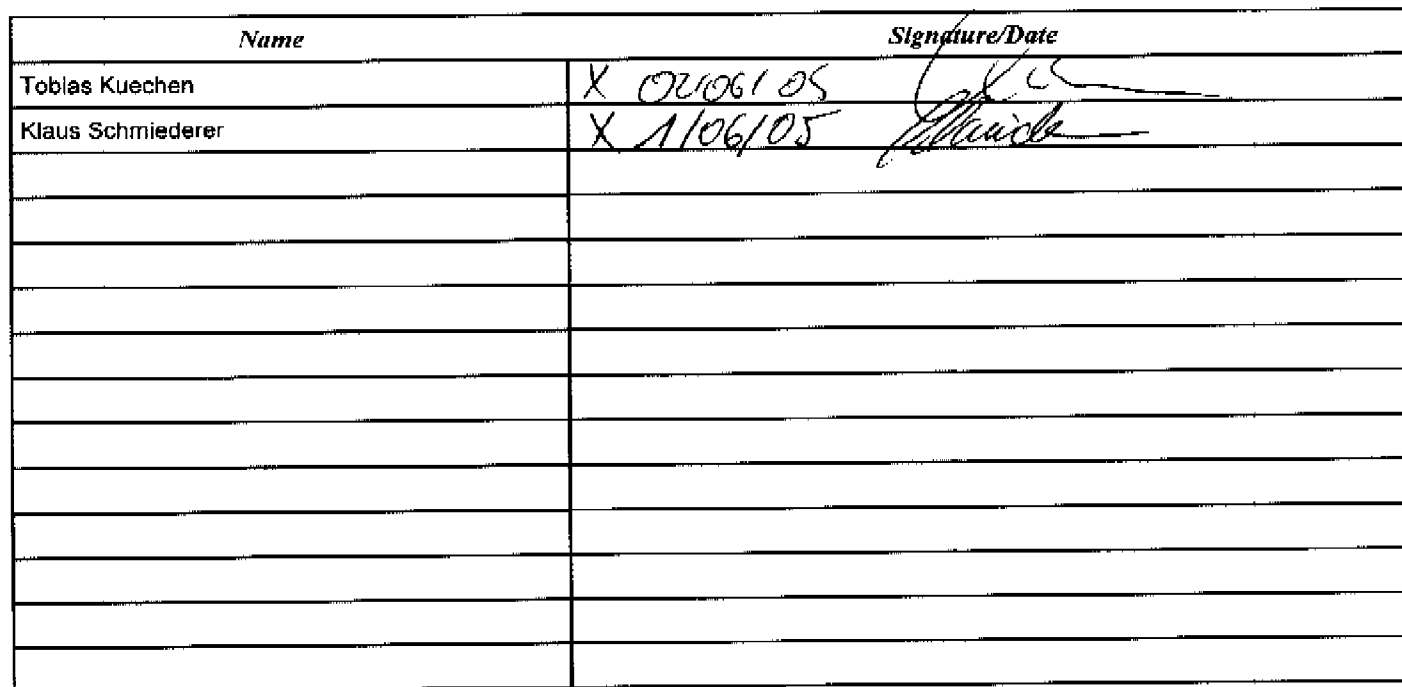 Name Signature/Date
Tobias Kuechen X 02/06/05
Klaus Schmiederer X 1/06/05